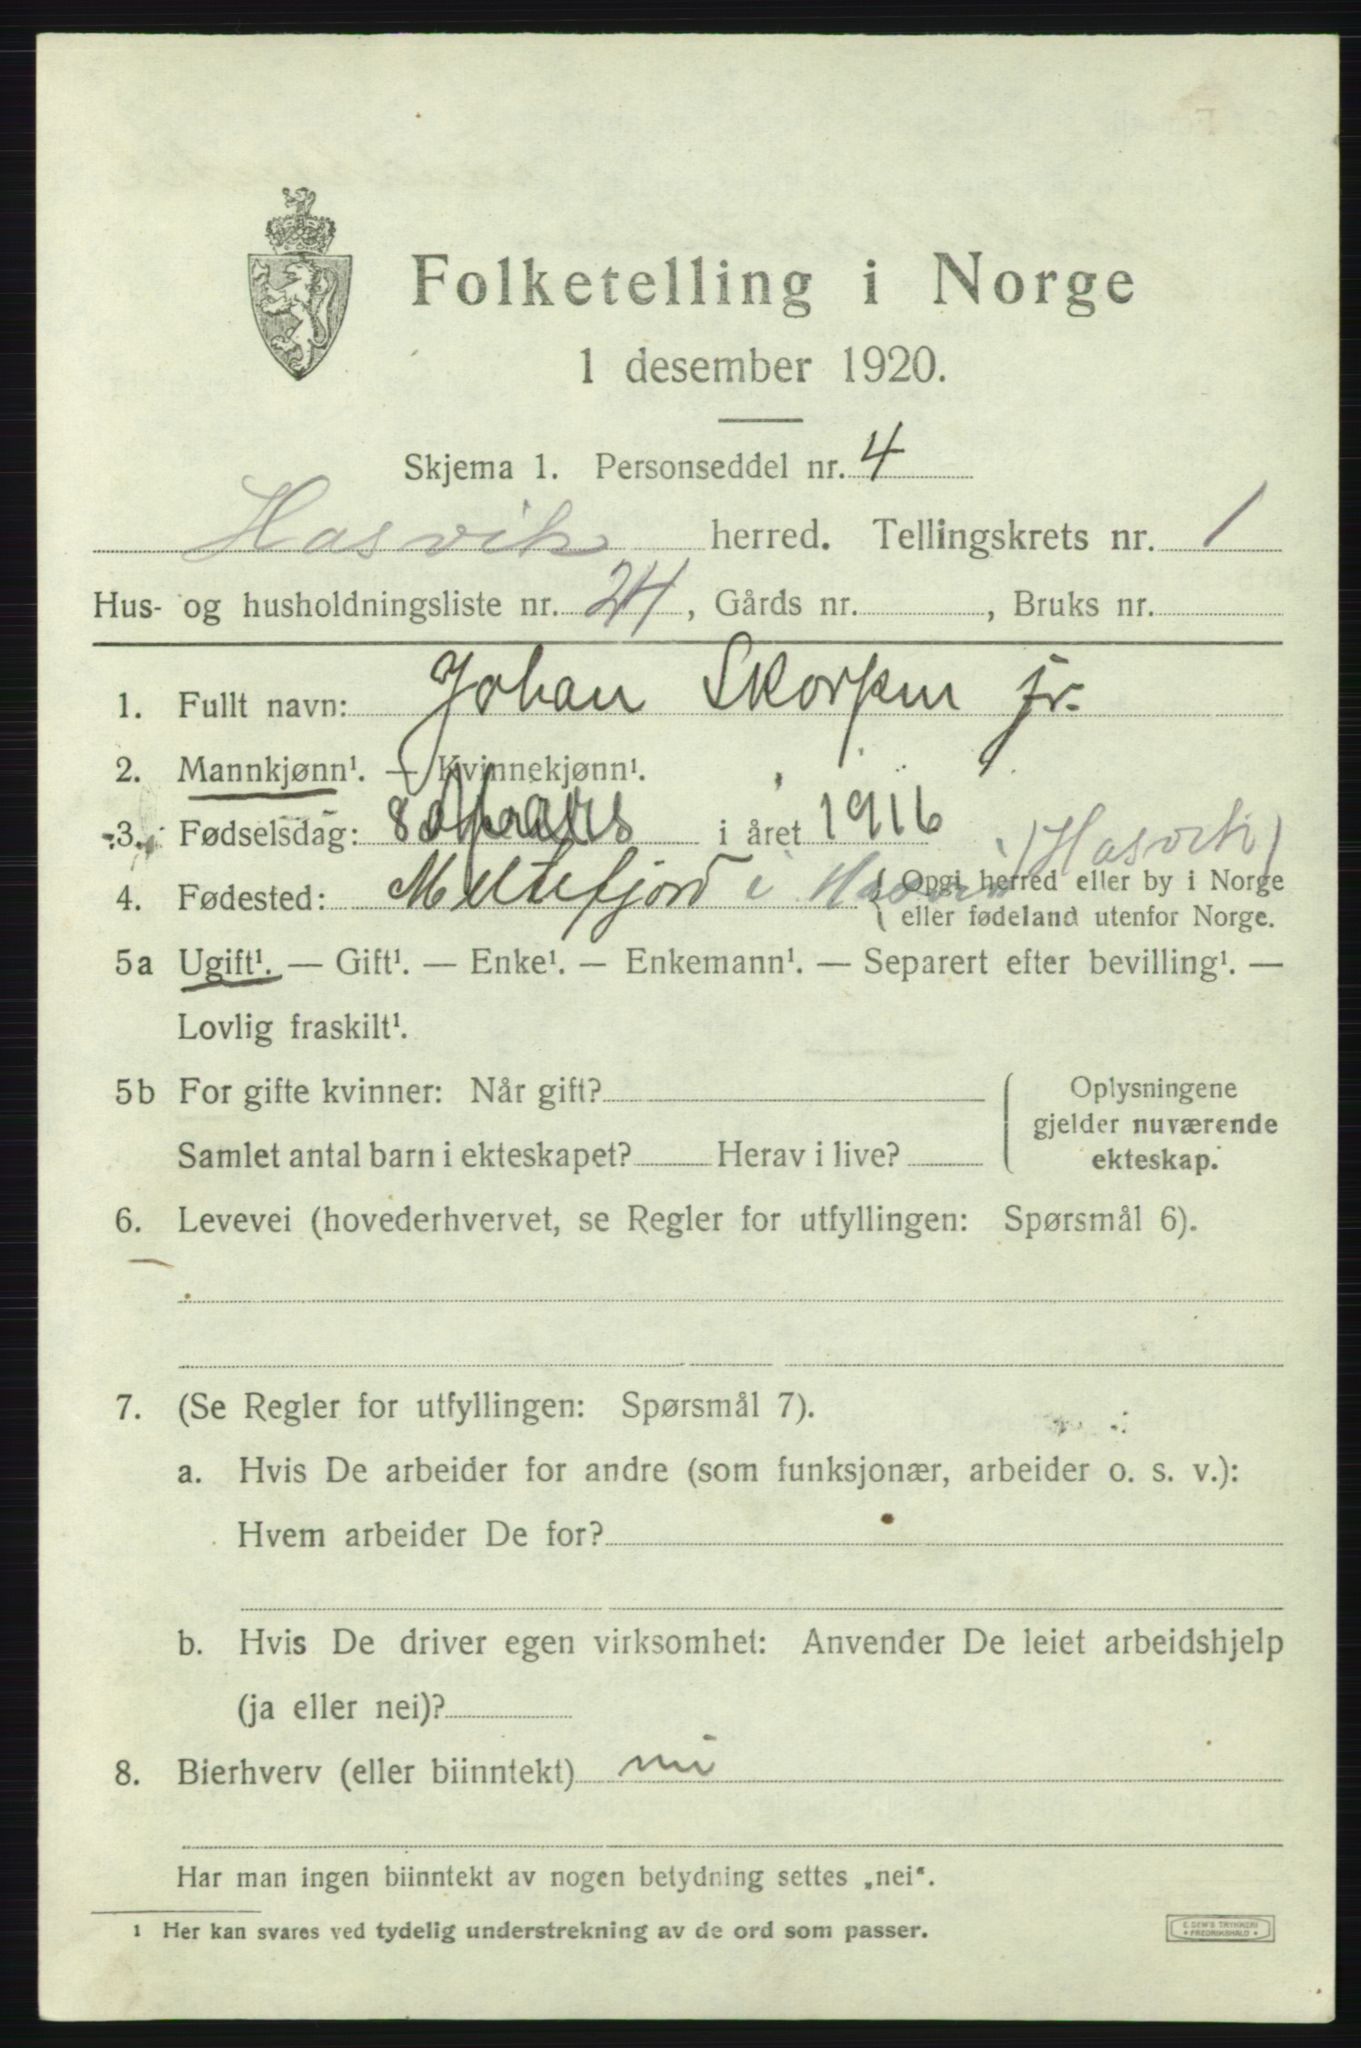 Folketelling i Norge
1 desember 1920.
Skjema 1. Personseddel nr. 4
Hasvik herred. Tellingskrets nr. 1
Hus- og husholdningsliste nr. 24, Gårds nr. , Bruks nr.
1. Fullt navn: Johan Skorpen jr.
2. Mannkjønn¹. — Kvinnekjønn¹.
3. Fødselsdag: 8 i året 1916
(Hasvik)
4. Fødested: i { Opgi herred eller by i Norge
eller fødeland utenfor Norge.
5a Ugift¹. — Gift¹. — Enke¹. — Enkemann¹. — Separert efter bevilling¹. —
Lovlig fraskilt¹.
5b For gifte kvinner: Når gift?
Samlet antal barn i ekteskapet? Herav i live?
Oplysningene
gjelder nuværende
ekteskap.
6. Levevei (hovederhvervet, se Regler for utfyllingen: Spørsmål 6).
7. (Se Regler for utfyllingen: Spørsmål 7).
a. Hvis De arbeider for andre (som funksjonær, arbeider o. s. v.):
Hvem arbeider De for?
b. Hvis De driver egen virksomhet: Anvender De leiet arbeidshjelp
(ja eller nei)?
8. Bierhverv (eller biinntekt) nei
Har man ingen biinntekt av nogen betydning settes „nei“.
1 Her kan svares ved tydelig understrekning av de ord som passer.
E. SEM'S TRYKKERI
FREDRIKSHALD